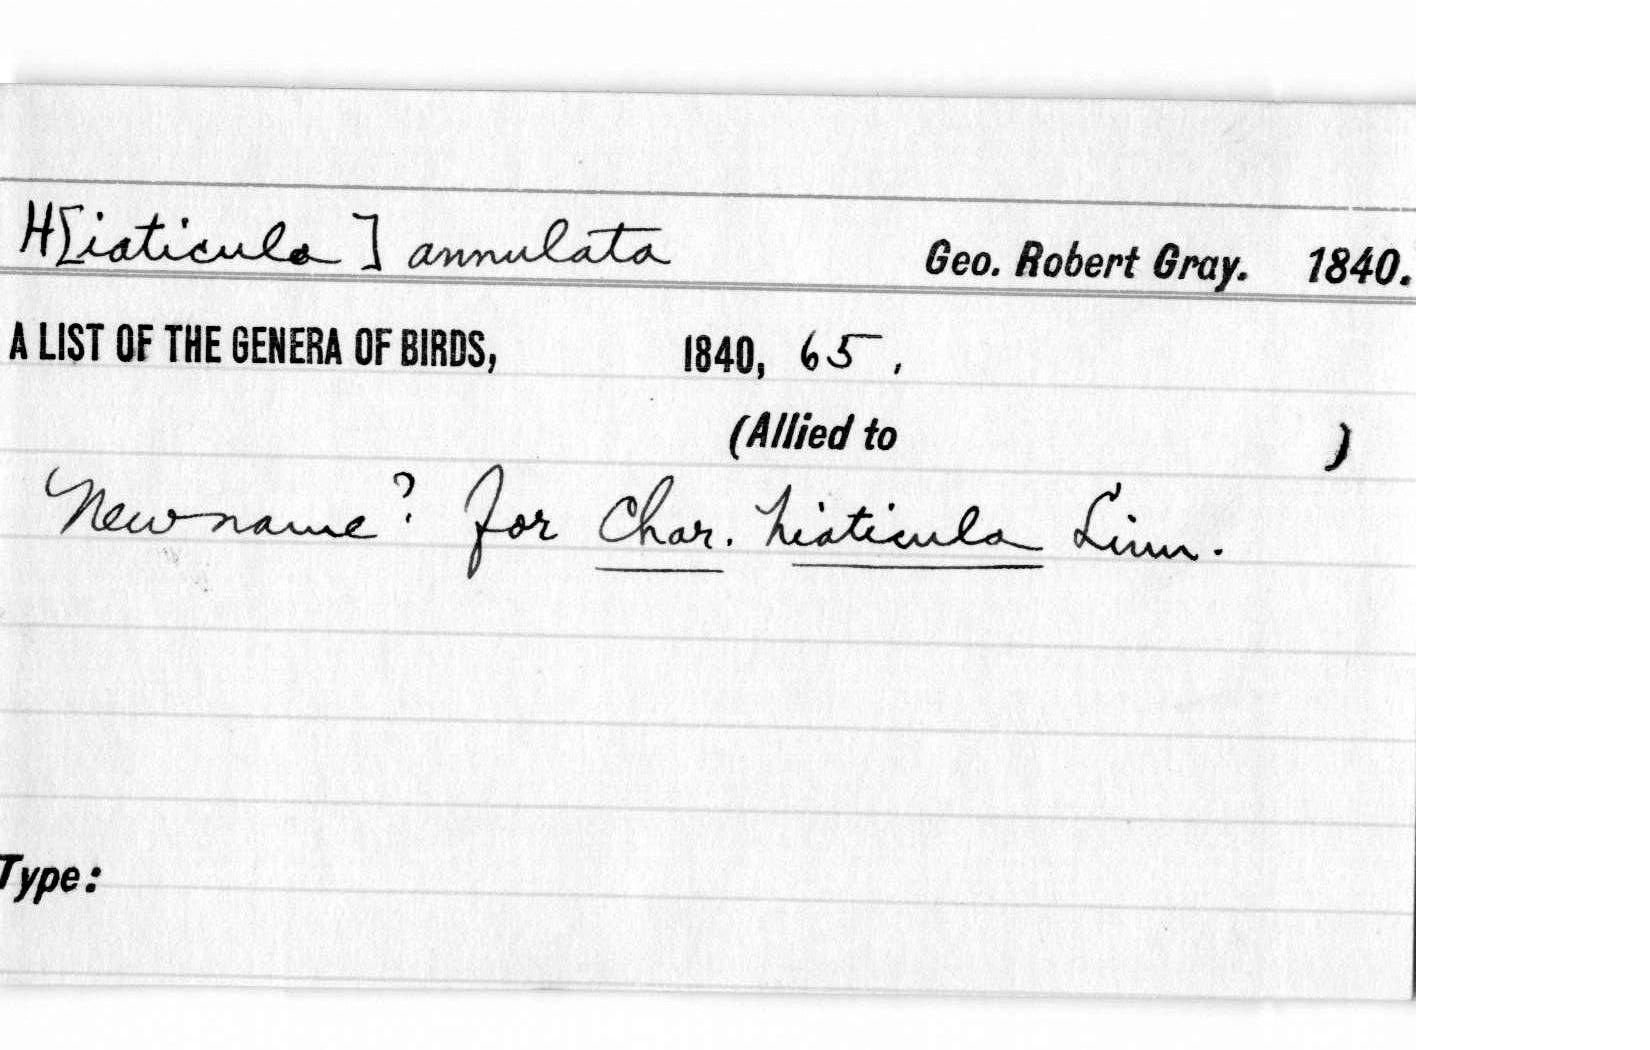 H[iaticula] annulata Geo. Robert Gray. 1840.
A LIST OF THE GENERA OF BIRDS, 1840, 65.
(Allied to )
New name? for Char. hiaticula Linn.
Type: